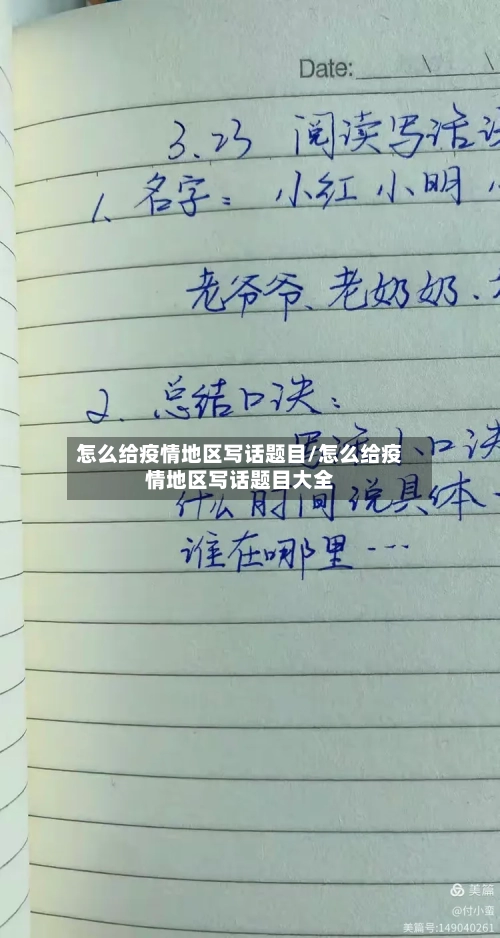 Date:
3.23 阅读写话
1、名字：小红 小明
老爷爷、老奶奶、
2、总结口诀：
写话小口诀
怎么给疫情地区写话题目/怎么给疫
情地区写话题目大全
什么时间说具体
谁在哪里…
美篇
@付小蛮
美篇号:149040261